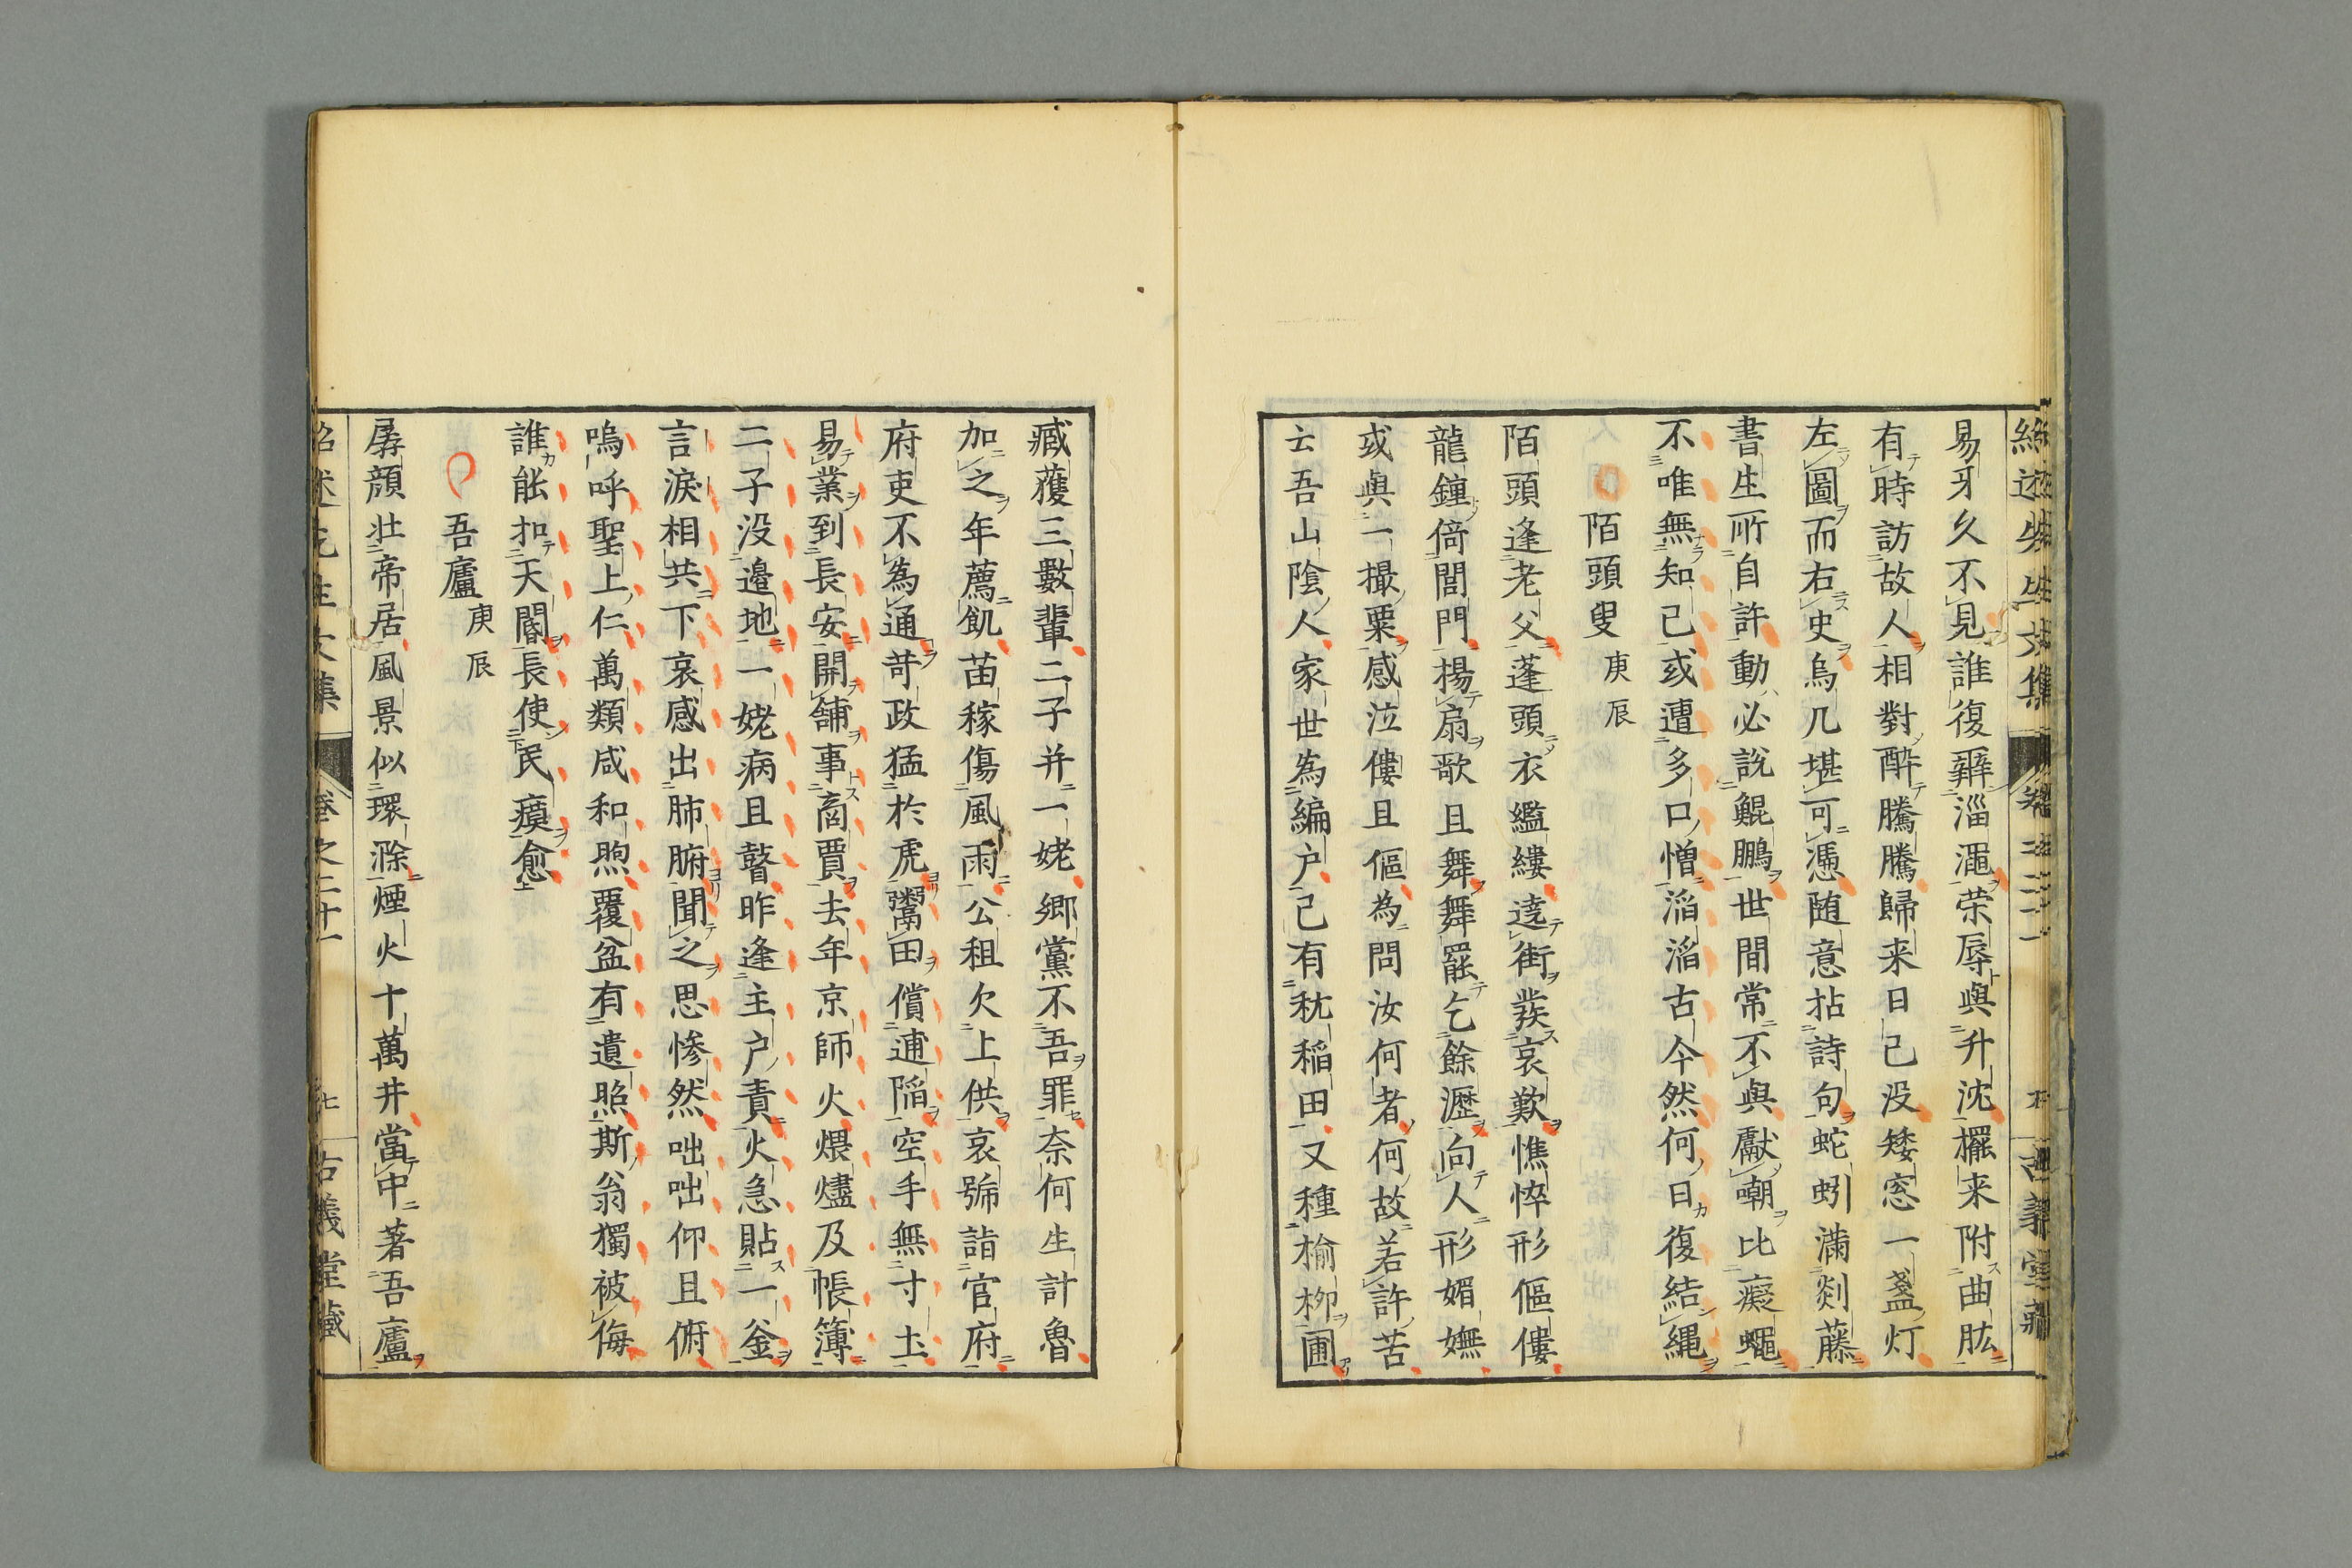 易牙久不見誰復辨淄澠荣辱與升沈擺来附曲肱
有時訪故人相對酔騰騰歸来日已没矮窓一盞灯
左圖而右史烏几堪可憑随意拈詩句蛇蚓満剡藤
書生所自許動必説鯤鵬世間常不與厭嘲比癡蠅
不唯無知己或遭多口憎滔滔古今然何日復結縄
陌頭叟庚辰
陌頭逢老父蓬頭衣繿縷遶街発哀歎憔悴形傴僂
龍鐘倚閭門揚扇歌且舞舞罷乞餘瀝向人形媚嫵
或與一撮粟感泣僂且傴為問汝何者何故若許苦
云吾山陰人家世為編户己有秔稲田又種榆栁圃
臧獲三數輩二子并一姥郷黨不吾罪奈何生計魯
加之年薦飢苗稼傷風雨公租欠上供哀號詣官府
府吏不為通苛政猛於虎鬻田償逋陥空手無寸土
易業到長安開舗事商賈去年京師火煨燼及帳簿
二子没邉地一姥病且瞽昨逢主户責火急貼一釜
言淚相共下哀感出肺腑聞之思惨然咄咄仰且俯
嗚呼聖上仁萬類咸和煦覆盆有遺照斯翁獨被侮
誰能扣天閽長使民瘼愈
吾廬庚辰
孱顔壮帝居風景似環滁煙火十萬井當中著吾廬
巻之二十一
古義堂藏